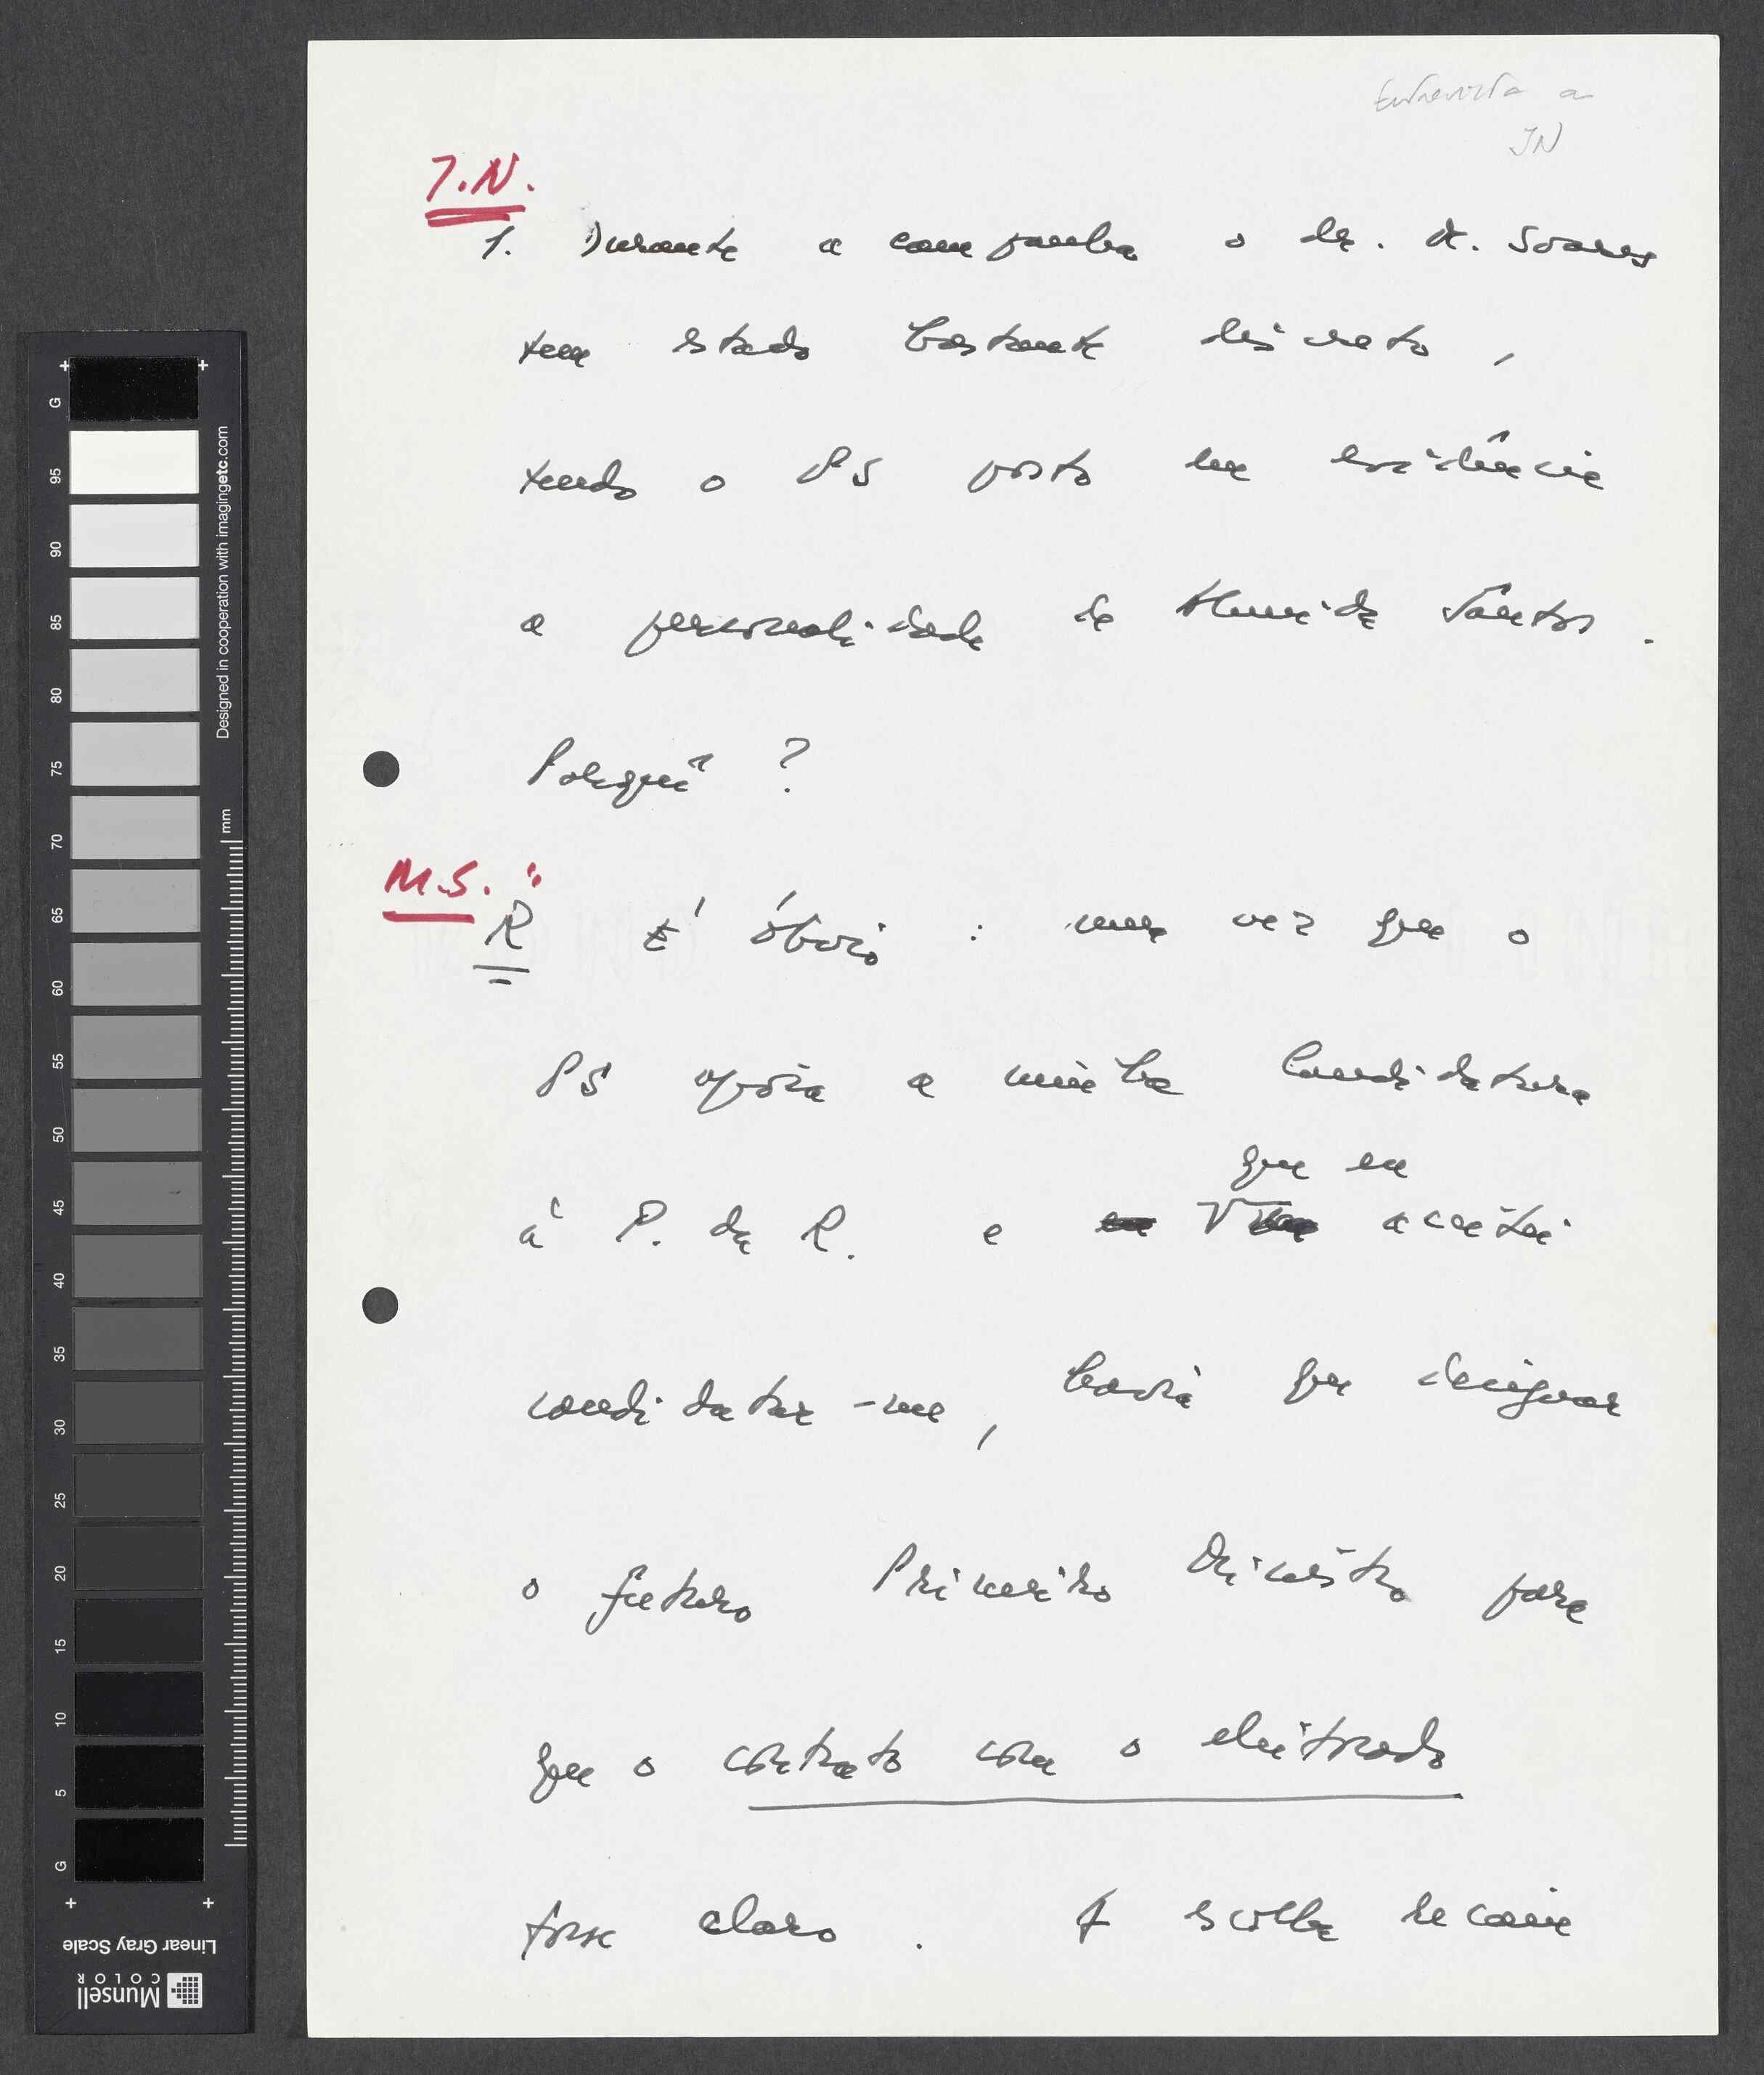 Entrevista a
JN
J.N.
1. Durante a campanha o dr. M. Soares
tem estado bastante discreto,
tendo o PS posto em evidência
a personalidade de Almeida Santos.
Porquê?
M.S. :
R É óbvio: uma vez que o
PS apoia a minha Candidatura
que eu
à P. da R. e aceitei
candidatar-me, havia que designar
o futuro Primeiro Ministro para
que o contrato com o eleitorado
fosse claro. A escolha recaiu
G
95
90
85
80
75
70
65
60
55
50
45
40
35
30
25
20
15
10
5
G
Designed in cooperation with imagingetc.com
mm
Linear Gray Scale
Munsell
COLOR